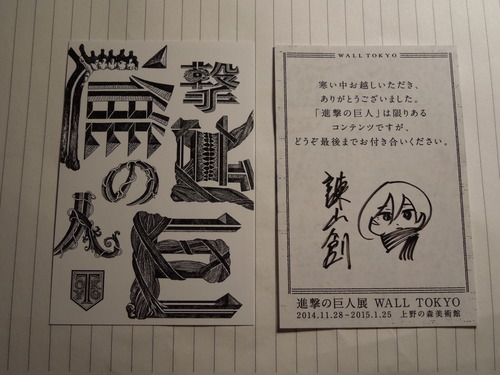 進撃
の巨
人
WALL TOKYO
寒い中お越しいただき、
ありがとうございました。
「進撃の巨人」は限りある
コンテンツですが、
どうぞ最後までお付き合いください。
諫山創
進撃の巨人展 WALL TOKYO
2014.11.28~2015.1.25 上野の森美術館